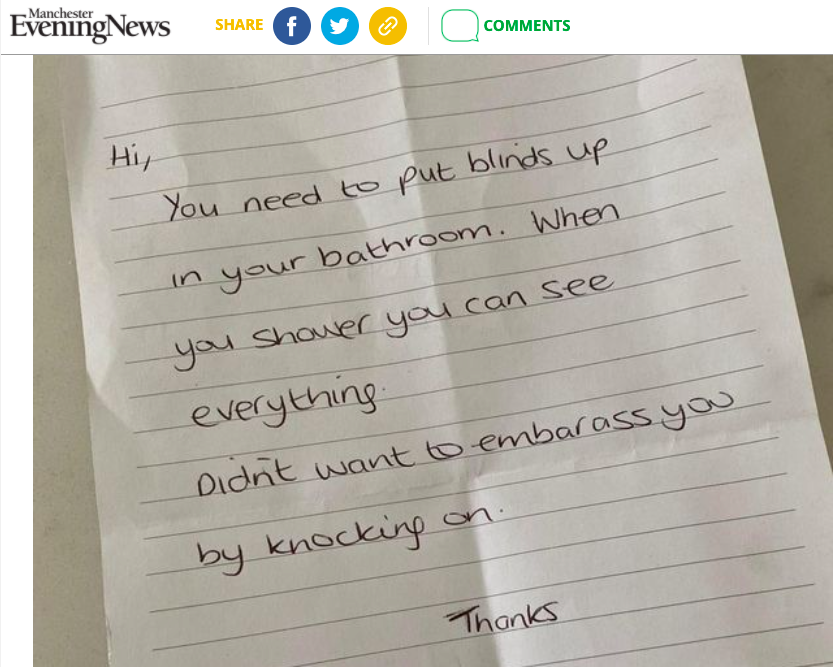 Manchester
Evening News
SHARE
COMMENTS
Hi,
You need to put blinds up
in your bathroom. When
you shower you can see
everything.
Didn't want to embarass you
by knocking on.
Thanks